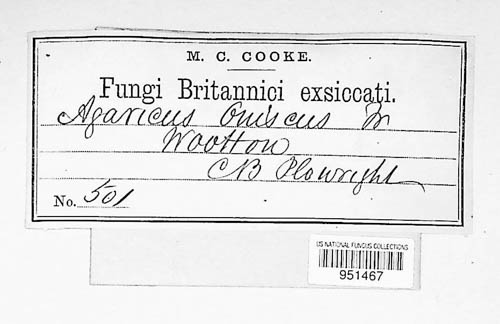 M. C. COOKE.
Fungi Britannici exsiccati.
Agaricus Oniscus Fr
Wootton
CB Plowright
No. 501
US NATIONAL FUNGUS COLLECTIONS
951467